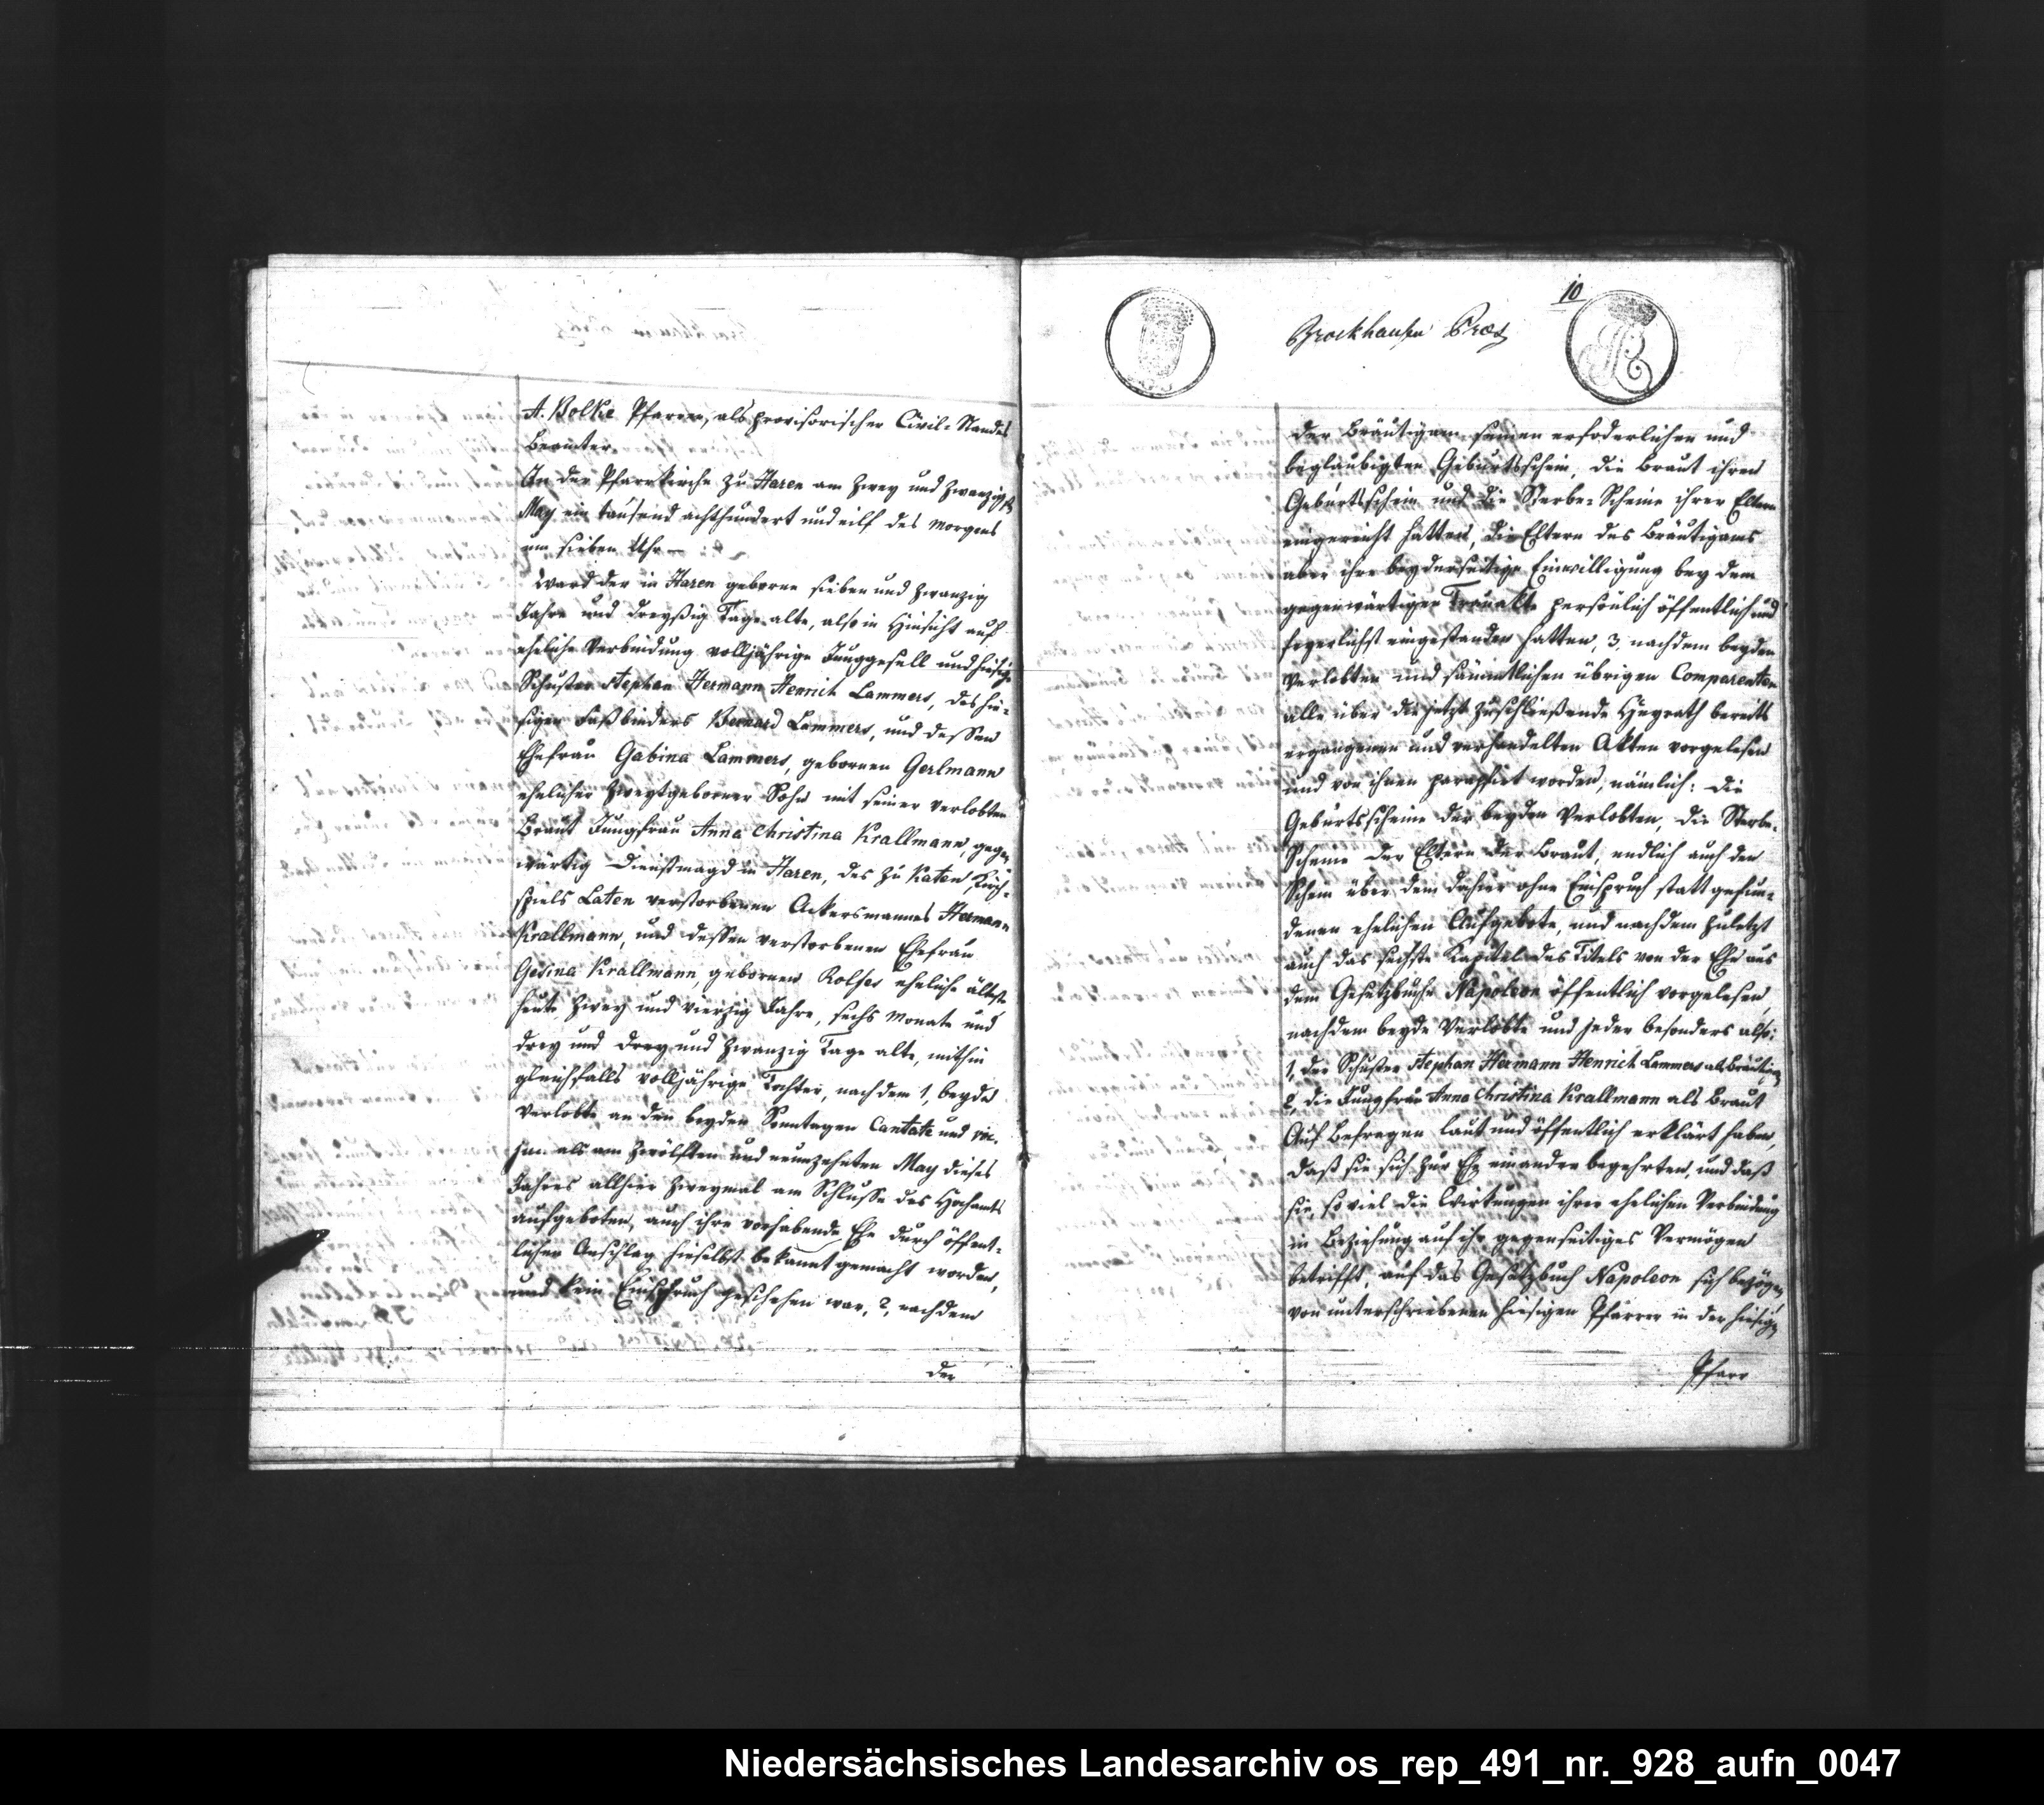 A. Bolke Pfarrer, als provisorischer Civil-Standes
Beamter.
In der Pfarrkirche zu Haren am zwey und zwanzigst
May ein tausend achthundert und eilf des morgens
um sieben Uhr
Ward der in Haren geborne sieben und zwanzig
Jahre und dreyßig Tage alte, also in Hinsicht auf
eheliche Verbindung volljährige Junggesell und hiesige
Schuster Stephan Hermann Henrich Lammers, des hie-
sigen Faßbinders Bernard Lammers, und dessen
Ehefrau Gabina Lammers, gebornen Gerlmann
ehelicher zweytgeborner Sohn mit seiner verlobten
Braut Jungfrau Anna Christina Krallmann, gegen
wärtig Dienstmagd in Haren, des zu Katen Kirch-
spiels Laten verstorbenen Ackersmannes Hermann
Krallmann, und dessen verstorbenen Ehefrau
Gesina Krallmann, gebornen Rolfes eheliche älteste
heute zwey und vierzig Jahre, sechs Monate und
drey und drey und zwanzig Tage alte, mithin
gleichfalls volljährige Tochter, nachdem 1, beyde
Verlobte an den beyden Sonntagen Cantate und
als am zwölften und neunzehnten May dieses
Jahres allhier zweymal am Schlusse des Hochamts
aufgeboten, auch ihre vorhabende Ehe durch öffent-
lichen Anschlag hieselbst bekannt gemacht worden,
und kein Einspruch geschehen war, 2, nachdem
der
10
Brockhausen Præs
der Bräutigam seinen erfoderlichen und
beglaubigten Geburtsschein, die Braut ihren
Geburtsschein und die Sterbe-Scheine ihrer Eltern
eingereicht hatten, die Eltern des Bräutigams
aber ihre beyderseitige Einwilligung bey dem
gegenwärtigen Trauakte persönlich öffentlich und
feyerlichst eingestanden hatten, 3, nachdem beyden
Verlobten und sämmtlichen übrigen Comparenten
alle über die jetzt zuschließende Heyrath bereits
ergangenen und verhandelten Akten vorgelesen
und von ihnen paraphirt worden, nämlich: die
Geburtsscheine der beyden Verlobten, die Sterbe-
Scheine der Eltern der Braut, endlich auch den
Schein über dem dahier ohne Einspruch statt gefun-
denen ehelichen Aufgebote, und nachdem zuletzt
auch das sechste Kapitel des Titels von der Ehe aus
dem Gesetzbuche Napoleon öffentlich vorgelesen,
nachdem beyde Verlobte und jeder besonders also:
1, der Schuster Stephan Hermann Henrich Lammers als Bräutigam
2, die Jungfrau Anna Christina Krallmann als Braut
Auf Befragen laut und öffentlich erklärt haben,
daß sie sich zur Ehe einander begehrten, und daß
sie, so viel die Wirkungen ihrer ehelichen Verbindung
in Beziehung auf ihr gegenseitiges Vermögen
betrifft, auf das Gesetzbuch Napoleon sich bezögen,
von unterschriebenen hiesigen Pfarrer in der hiesigen
Pfarr
Niedersächsisches Landesarchiv os_rep_491_nr._928_aufn_0047